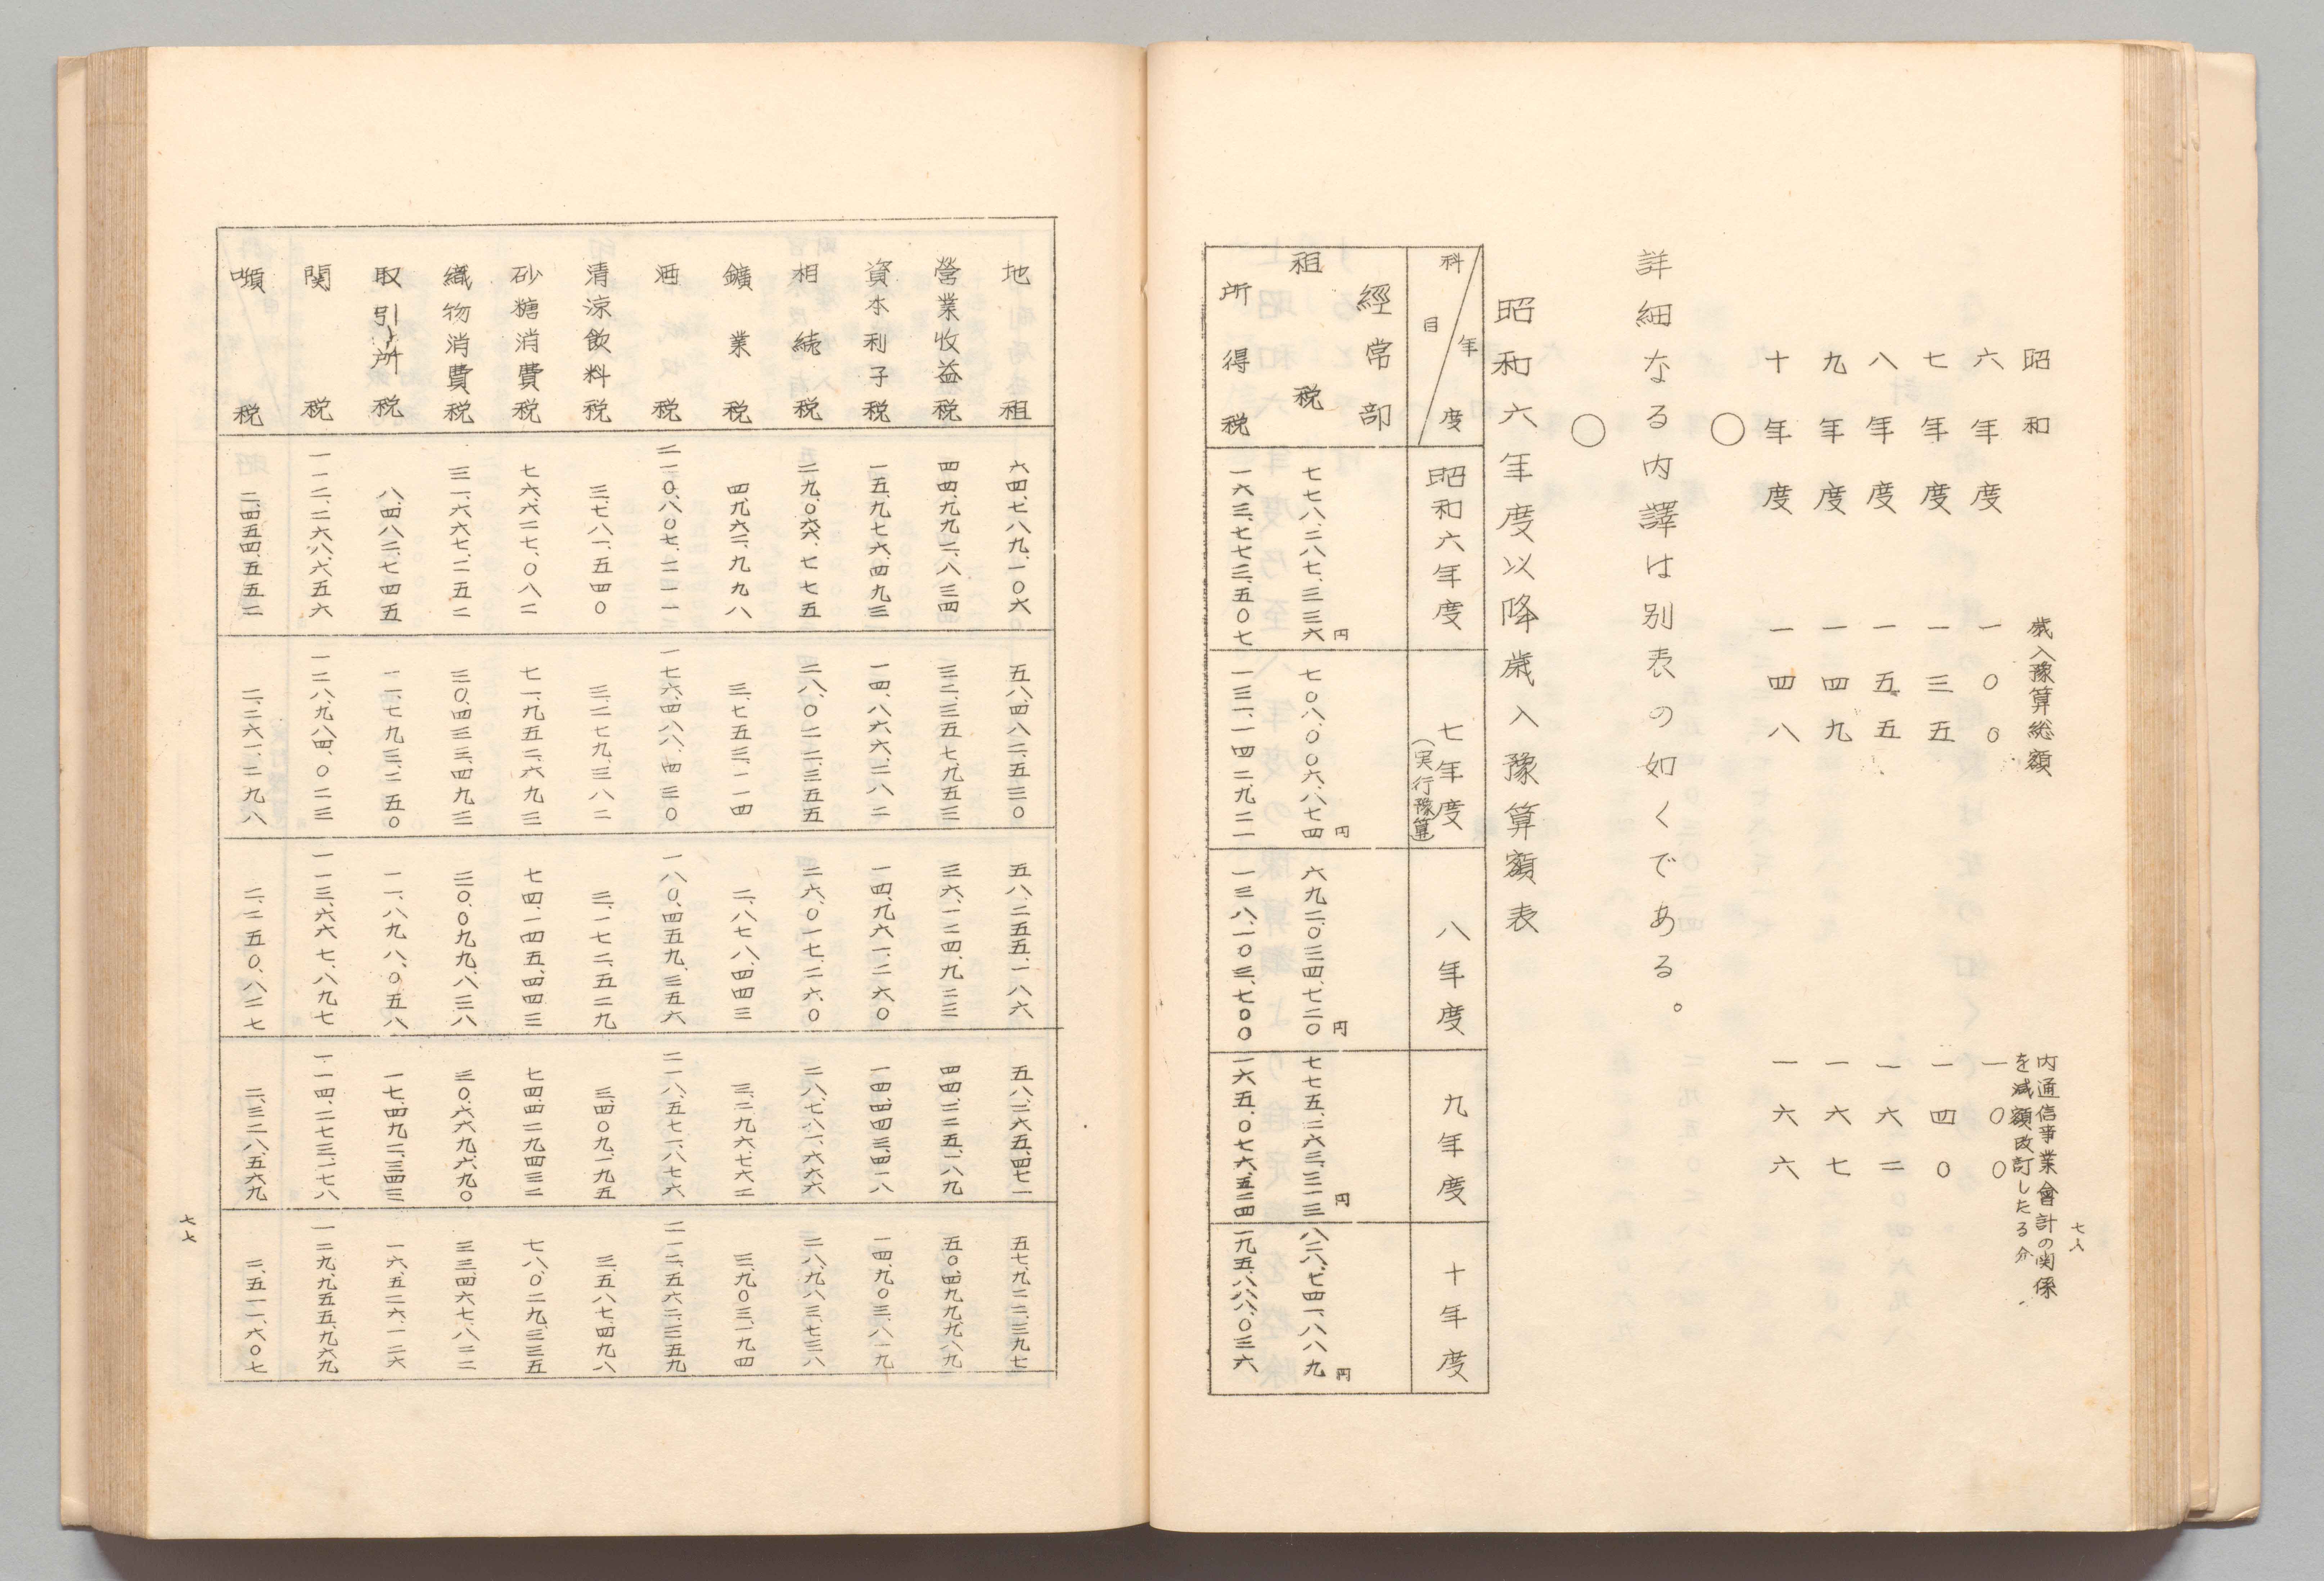 七六
昭和 歳入豫算総額 内通信事業會計の関係を減額改訂したる分
六年度 一〇〇 一〇〇
七年度 一三五 一四〇
八年度 一五五 一六二
九年度 一四九 一六七
十年度 一四八 一六六
○
詳細なる内譯は別表の如くである。
○
昭和六年度以降歳入豫算額表
科目 年度 昭和六年度 七年度(実行豫算) 八年度 九年度 十年度
經常部
租税 七七八、二八七、三三六円 七〇八、〇〇六、八七四円 六九二、〇三四、七二〇円 七七五、二六三、三一三円 八二八、七四一、八八九円
所得税 一六三、七七三、五〇七 一三一、一四二、九二一 一三八、一〇三、七〇〇 一六五、〇七六、五二四 一九五、八八八、〇三六
地租 六四、七八九、一〇六 五八、四八二、五三〇 五八、二五五、一八六 五八、二六五、四七一 五七、九二二、三九七
營業收益税 四四、九九二、八三四 三二、三五七、九五三 三六、一二四、九二三 四四、二二五、一八九 五〇、四九九、九八九
資本利子税 一五、九七六、四九三 一四、八六六、二八二 一四、九六一、二六〇 一四、四四三、四一八 一四、九〇三、八一九
相続税 二九、〇六六、七七五 二八、〇二二、三五五 二六、〇一七、二六〇 二八、七八一、六六六 二八、九八三、七三八
鑛業税 四、九六二、九九八 三、七五三、一一四 二、八七八、四四三 三、二九六、七六二 三、九〇三、一九四
酒税 二一〇、八〇七、二一一 一七六、四八八、四三〇 一八〇、四五九、三五六 二一八、五七一、八七六 二一二、五六二、三五九
清涼飲料税 三、七八一、五四〇 三、二七九、三八二 三、一七二、五二九 三、四〇九、一九五 三、五八七、四九八
砂糖消費税 七六、六二七、〇八二 七一、九五二、六九三 七四、一四五、四四三 七四、四二九、四三二 七八、〇二九、三三五
織物消費税 三一、六六七、二五二 三〇、四三三、四九三 三〇、〇九九、八三八 三〇、六六九、六九〇 三三、四六七、八二二
取引所税 八、四八二、七四五 一一、七九三、二五〇 一一、八九八、〇五八 一七、四九二、三四三 一六、五二六、一二六
関税 一一二、二六八、六五六 一二八、九八四、〇二三 一一三、六六七、八九七 一一四、二七三、一七八 一二九、九五五、九六九
噸税 二、四五四、五五二 二、二六一、二九八 二、二五〇、八二七 二、三二八、五六九 二、五一一、六〇七
七七